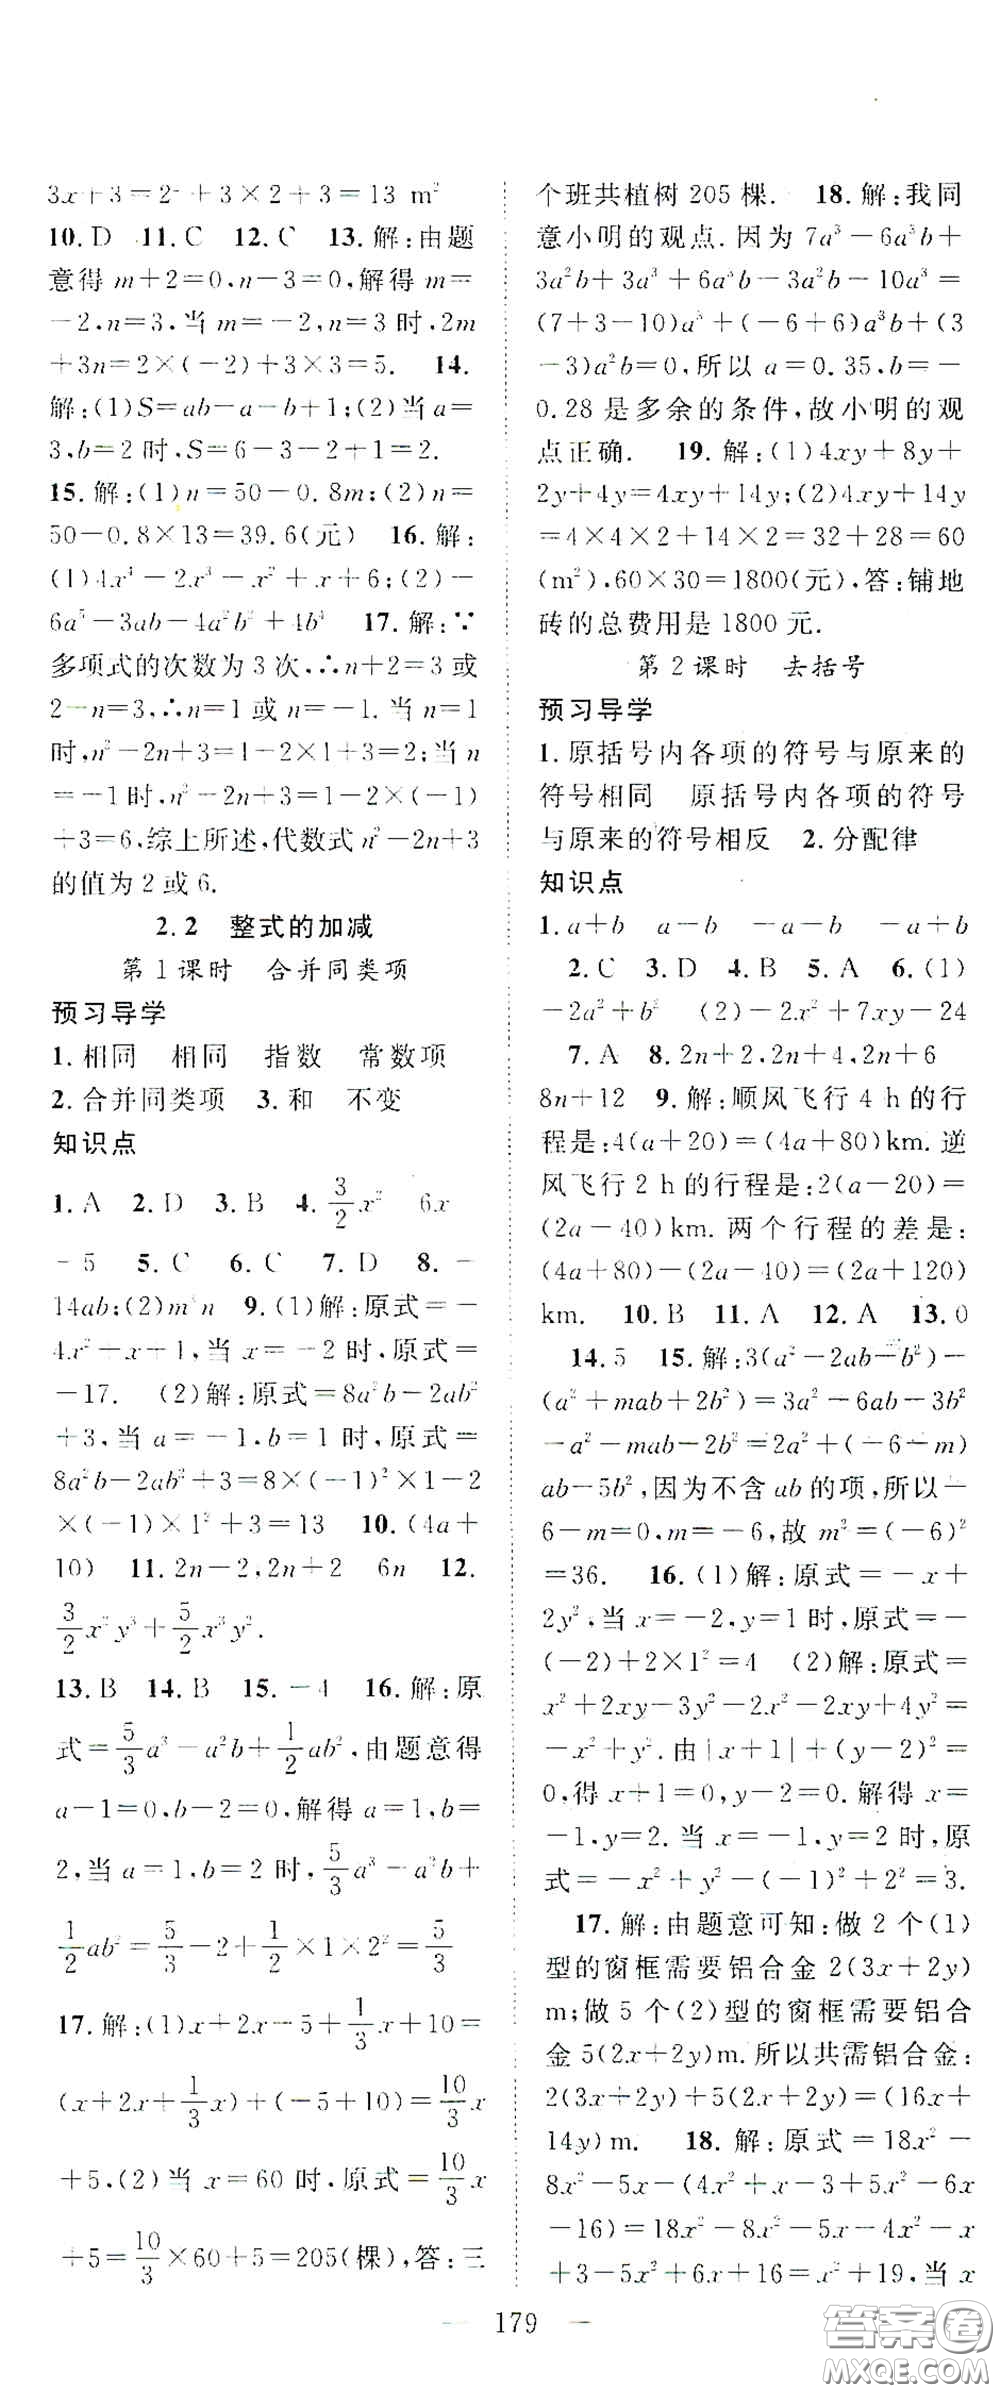 3x+3=2²+3×2+3=13 m²
10.D 11.C 12.C 13.解:由题
意得 m+2=0,n-3=0,解得 m=
-2,n=3.当 m=-2,n=3 时,2m
+3n=2×(-2)+3×3=5. 14.
解:(1)S=ab-a-b+1;(2)当 a=
3,b=2 时,S=6-3-2+1=2.
15.解:(1)n=50-0.8m;(2)n=
50-0.8×13=39.6(元) 16.解:
(1)4x⁴-2x³-x²+x+6;(2)-
6a⁵-3ab-4a²b²+4b⁴ 17.解:∵
多项式的次数为 3 次,∴n+2=3 或
2-n=3,∴n=1 或 n=-1.当 n=1
时,n²-2n+3=1-2×1+3=2;当 n
=-1 时,n²-2n+3=1-2×(-1)
+3=6,综上所述,代数式 n²-2n+3
的值为 2 或 6.
2.2 整式的加减
第 1 课时 合并同类项
预习导学
1.相同 相同 指数 常数项
2.合并同类项 3.和 不变
知识点
1.A 2.D 3.B 4.3/2x² 6x
-5 5.C 6.C 7.D 8.-
14ab;(2)m²n 9.(1)解:原式=-
4x²-x+1,当 x=-2 时,原式=
-17. (2)解:原式=8a²b-2ab²
+3,当 a=-1,b=1 时,原式=
8a²b-2ab²+3=8×(-1)²×1-2
×(-1)×1²+3=13 10.(4a+
10) 11.2n-2,2n+2 6n 12.
3/2x²y³+5/2x³y².
13.B 14.B 15.-4 16.解:原
式=5/3a³-a²b+1/2ab²,由题意得
a-1=0,b-2=0,解得 a=1,b=
2,当 a=1,b=2 时,5/3a³-a²b+
1/2ab²=5/3-2+1/2×1×2²=5/3
17.解:(1)x+2x-5+1/3x+10=
(x+2x+1/3x)+(-5+10)=10/3x
+5.(2)当 x=60 时,原式=10/3x
+5=10/3×60+5=205(棵),答:三
个班共植树 205 棵. 18.解:我同
意小明的观点.因为 7a³-6a³b+
3a²b+3a³+6a³b-3a²b-10a³=
(7+3-10)a³+(-6+6)a³b+(3
-3)a²b=0,所以 a=0.35,b=-
0.28 是多余的条件,故小明的观
点正确. 19.解:(1)4xy+8y+
2y+4y=4xy+14y;(2)4xy+14y
=4×4×2+14×2=32+28=60
(m²),60×30=1800(元),答:铺地
砖的总费用是 1800 元.
第 2 课时 去括号
预习导学
1.原括号内各项的符号与原来的
符号相同 原括号内各项的符号
与原来的符号相反 2.分配律
知识点
1.a+b a-b -a-b -a+b
2.C 3.D 4.B 5.A 6.(1)
-2a²+b² (2)-2x²+7xy-24
7.A 8.2n+2,2n+4,2n+6
8n+12 9.解:顺风飞行 4 h 的行
程是:4(a+20)=(4a+80)km.逆
风飞行 2 h 的行程是:2(a-20)=
(2a-40)km.两个行程的差是:
(4a+80)-(2a-40)=(2a+120)
km. 10.B 11.A 12.A 13.0
14.5 15.解:3(a²-2ab-b²)-
(a²+mab+2b²)=3a²-6ab-3b²
-a²-mab-2b²=2a²+(-6-m)
ab-5b²,因为不含 ab 的项,所以-
6-m=0,m=-6,故 m²=(-6)²
=36. 16.(1)解:原式=-x+
2y²,当 x=-2,y=1 时,原式=-
(-2)+2×1²=4 (2)解:原式=
x²+2xy-3y²-2x²-2xy+4y²=
-x²+y².由|x+1|+(y-2)²=
0,得 x+1=0,y-2=0.解得 x=
-1,y=2.当 x=-1,y=2 时,原
式=-x²+y²-(-1)²+2²=3.
17.解:由题意可知:做 2 个(1)
型的窗框需要铝合金 2(3x+2y)
m;做 5 个(2)型的窗框需要铝合
金 5(2x+2y)m.所以共需铝合金:
2(3x+2y)+5(2x+2y)=(16x+
14y)m. 18.解:原式=18x²-
8x²-5x-(4x²+x-3+5x²-6x
-16)=18x²-8x²-5x-4x²-x
+3-5x²+6x+16=x²+19,当 x
— 179 —
答案卷
MXQE.COM